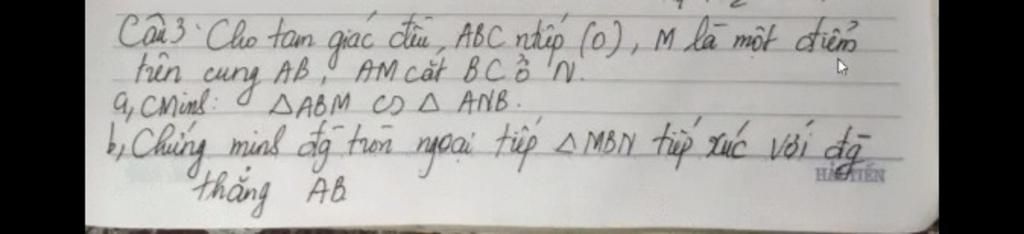 Câu 3: Cho tam giác đều, ABC ntiếp (O), M là một điểm
trên cung AB, AM cắt BC ở N.
a, CMinh: △ABM ∽ △ ANB.
b, Chứng minh đg tròn ngoại tiếp △MBN tiếp xúc với đg
thẳng AB
HẢI TIẾN